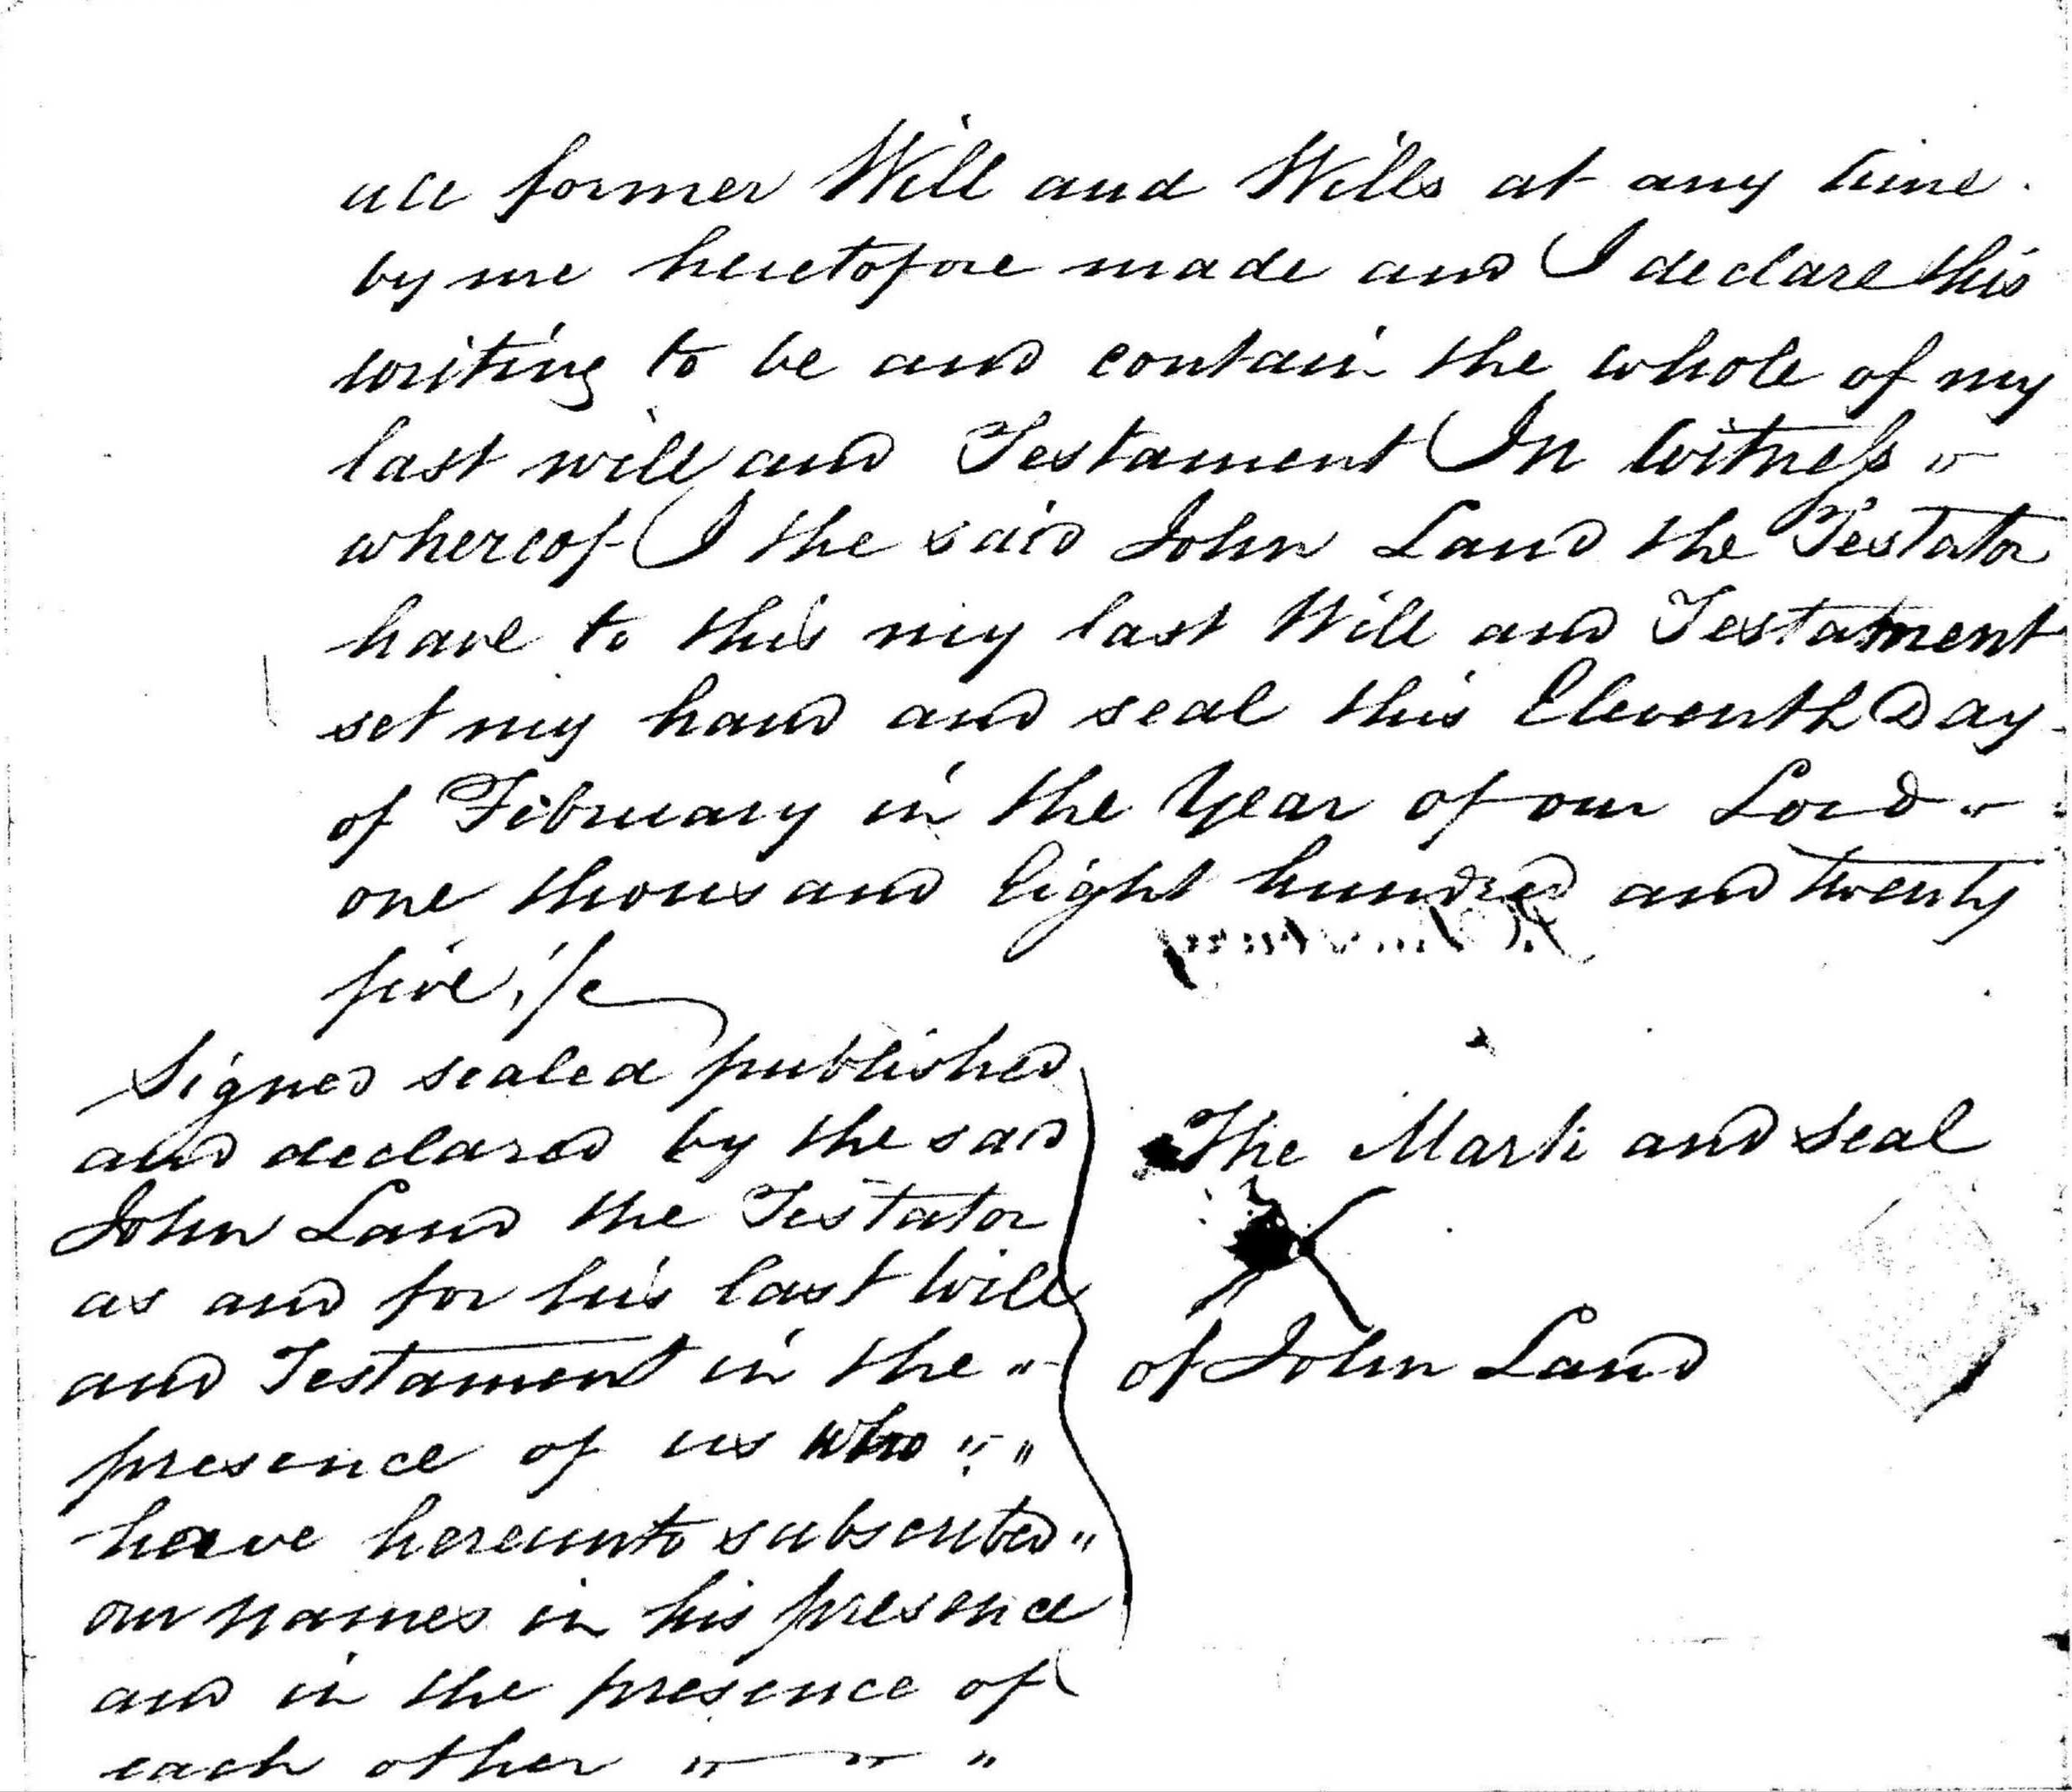 all former Will and Wills at any time
by me heretofore made and I declare this
writing to be and contain the whole of my
last will and Testament In Witness "
whereof I the said John Land the Testator
have to this my last Will and Testament
set my hand and seal this Eleventh Day
of February in the Year of our Lord "
one thousand Eight hundred and twenty
five
Signed sealed published
and declared by the said
John Land the Testator
as and for his last Will
and Testament in the "
presence of us who " "
have hereunto subscribed "
our names in his presence
and in the presence of
each other " " "
The Mark and Seal
X
of John Land